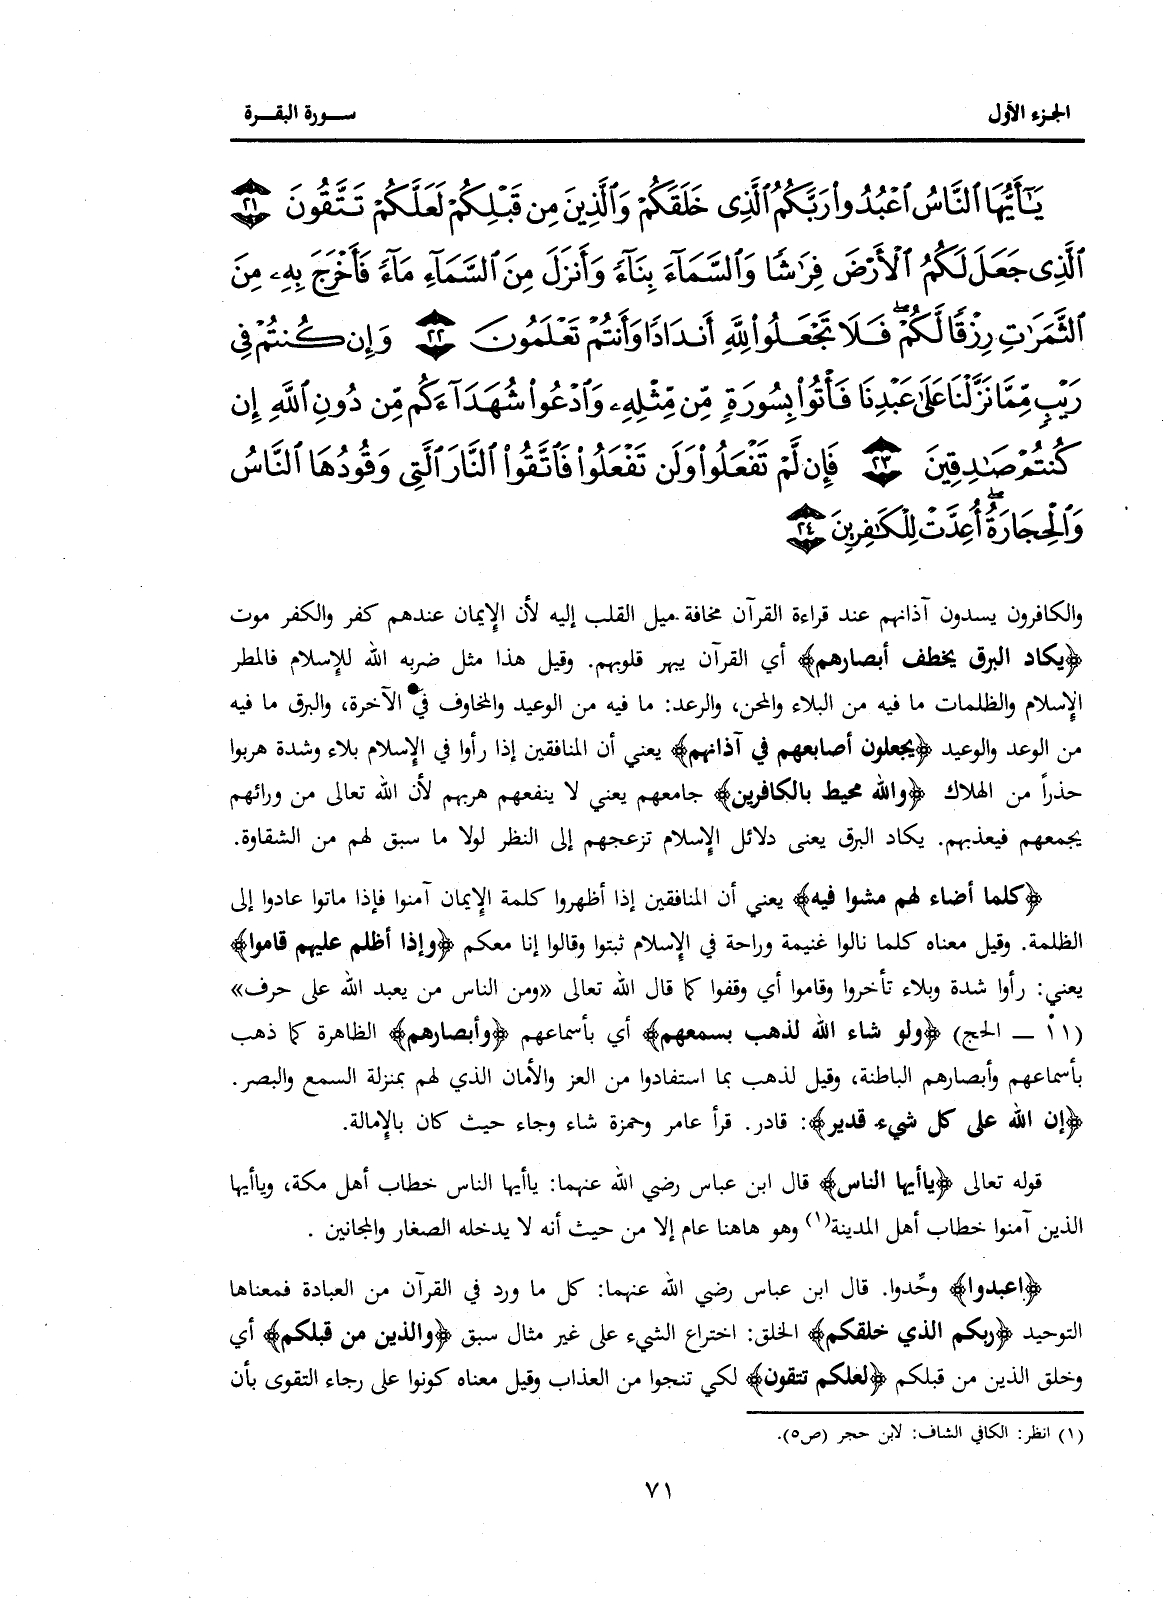 الجزء الأول
سورة البقرة
يَـٰٓأَيُّهَا ٱلنَّاسُ ٱعْبُدُوا۟ رَبَّكُمُ ٱلَّذِى خَلَقَكُمْ وَٱلَّذِينَ مِن قَبْلِكُمْ لَعَلَّكُمْ تَتَّقُونَ ٢١
ٱلَّذِى جَعَلَ لَكُمُ ٱلْأَرْضَ فِرَٰشًا وَٱلسَّمَآءَ بِنَآءً وَأَنزَلَ مِنَ ٱلسَّمَآءِ مَآءً فَأَخْرَجَ بِهِۦ مِنَ
ٱلثَّمَرَٰتِ رِزْقًا لَّكُمْ ۖ فَلَا تَجْعَلُوا۟ لِلَّهِ أَندَادًا وَأَنتُمْ تَعْلَمُونَ ٢٢ وَإِن كُنتُمْ فِى
رَيْبٍ مِّمَّا نَزَّلْنَا عَلَىٰ عَبْدِنَا فَأْتُوا۟ بِسُورَةٍ مِّن مِّثْلِهِۦ وَٱدْعُوا۟ شُهَدَآءَكُم مِّن دُونِ ٱللَّهِ إِن
كُنتُمْ صَـٰدِقِينَ ٢٣ فَإِن لَّمْ تَفْعَلُوا۟ وَلَن تَفْعَلُوا۟ فَٱتَّقُوا۟ ٱلنَّارَ ٱلَّتِى وَقُودُهَا ٱلنَّاسُ
وَٱلْحِجَارَةُ ۖ أُعِدَّتْ لِلْكَـٰفِرِينَ ٢٤
والكافرون يسدون آذانهم عند قراءة القرآن مخافة ميل القلب إليه لأن الإيمان عندهم كفر والكفر موت
﴿يكاد البرق يخطف أبصارهم﴾ أي القرآن يبهر قلوبهم. وقيل هذا مثل ضربه الله للإسلام فالمطر
الإسلام والظلمات ما فيه من البلاء والمحن، والرعد: ما فيه من الوعيد والمخاوف في الآخرة، والبرق ما فيه
من الوعد والوعيد ﴿يجعلون أصابعهم في آذانهم﴾ يعني أن المنافقين إذا رأوا في الإسلام بلاء وشدة هربوا
حذراً من الهلاك ﴿والله محيط بالكافرين﴾ جامعهم يعني لا ينفعهم هربهم لأن الله تعالى من ورائهم
يجمعهم فيعذبهم. يكاد البرق يعنى دلائل الإسلام تزعجهم إلى النظر لولا ما سبق لهم من الشقاوة.
﴿كلما أضاء لهم مشوا فيه﴾ يعني أن المنافقين إذا أظهروا كلمة الإيمان آمنوا فإذا ماتوا عادوا إلى
الظلمة. وقيل معناه كلما نالوا غنيمة وراحة في الإسلام ثبتوا وقالوا إنا معكم ﴿وإذا أظلم عليهم قاموا﴾
يعني: رأوا شدة وبلاء تأخروا وقاموا أي وقفوا كما قال الله تعالى «ومن الناس من يعبد الله على حرف»
(١١ ـــ الحج) ﴿ولو شاء الله لذهب بسمعهم﴾ أي بأسماعهم ﴿وأبصارهم﴾ الظاهرة كما ذهب
بأسماعهم وأبصارهم الباطنة، وقيل لذهب بما استفادوا من العز والأمان الذي لهم بمنزلة السمع والبصر.
﴿إن الله على كل شيء قدير﴾: قادر. قرأ عامر وحمزة شاء وجاء حيث كان بالإمالة.
قوله تعالى ﴿ياأيها الناس﴾ قال ابن عباس رضي الله عنهما: ياأيها الناس خطاب أهل مكة، وياأيها
الذين آمنوا خطاب أهل المدينة(١) وهو هاهنا عام إلا من حيث أنه لا يدخله الصغار والمجانين .
﴿اعبدوا﴾ وحِّدوا. قال ابن عباس رضي الله عنهما: كل ما ورد في القرآن من العبادة فمعناها
التوحيد ﴿ربكم الذي خلقكم﴾ الخلق: اختراع الشيء على غير مثال سبق ﴿والذين من قبلكم﴾ أي
وخلق الذين من قبلكم ﴿لعلكم تتقون﴾ لكي تنجوا من العذاب وقيل معناه كونوا على رجاء التقوى بأن
(١) انظر: الكافي الشاف: لابن حجر (ص٥).
٧١